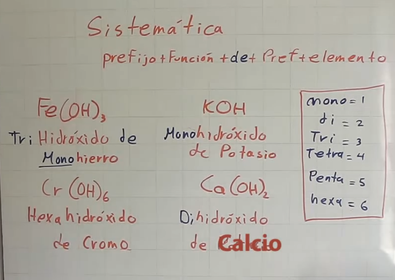 Sistemática
prefijo+Función+de+Pref+elemento
Fe(OH)₃
Tri Hidróxido de
Monohierro
KOH
Monohidróxido
de Potasio
Cr(OH)₆
Hexahidróxido
de Cromo
Ca(OH)₂
Dihidróxido
de Calcio
mono=1
di=2
Tri=3
Tetra=4
Penta=5
hexa=6